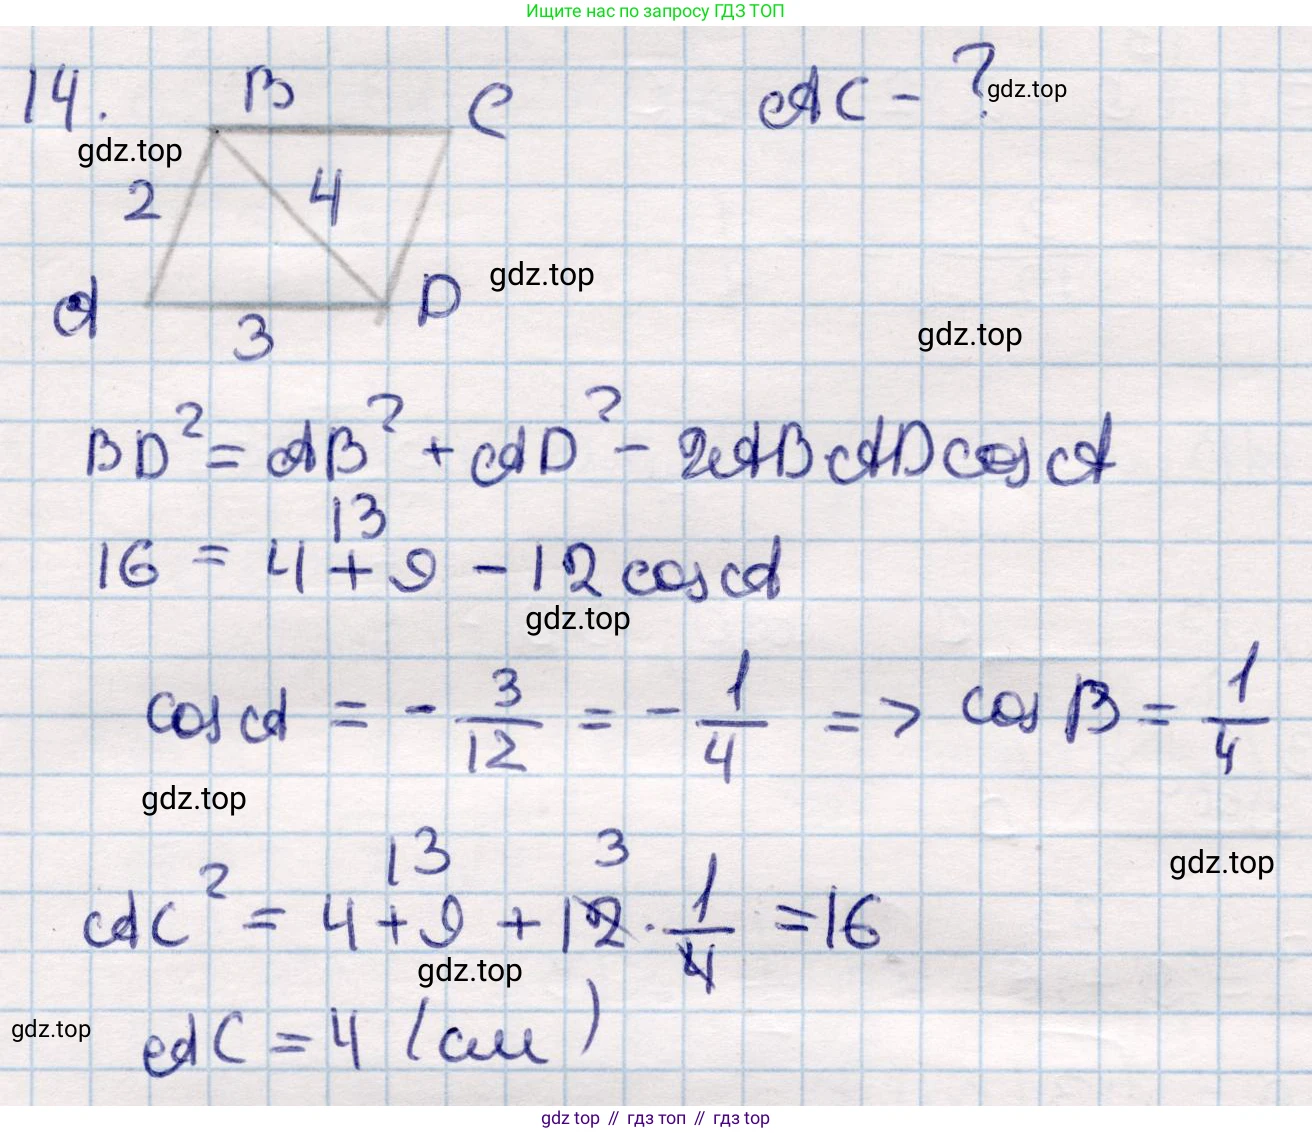 Ищите нас по запросу ГДЗ ТОП
14. B C AC - ?
gdz.top
gdz.top
2 4
A D
gdz.top
3
gdz.top
BD² = AB² + AD² - 2AB AD cos A
13
16 = 4 + 9 - 12 cos A
gdz.top
cos A = - 3/12 = - 1/4 => cos B = 1/4
gdz.top
13 3
gdz.top
AC² = 4 + 9 + 12 · 1/4 = 16
gdz.top
gdz.top
AC = 4 (см)
gdz top // гдз топ // гдз top